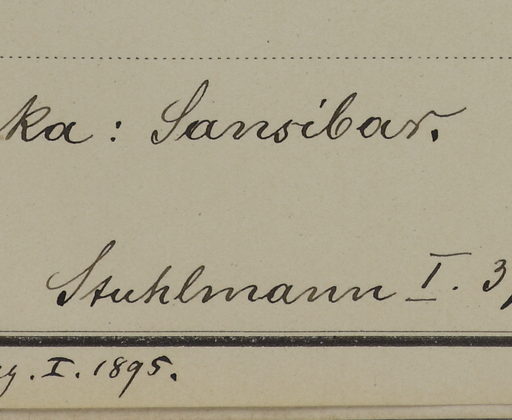 ka: Sansibar.
Stuhlmann I. 3
g. I. 1895.